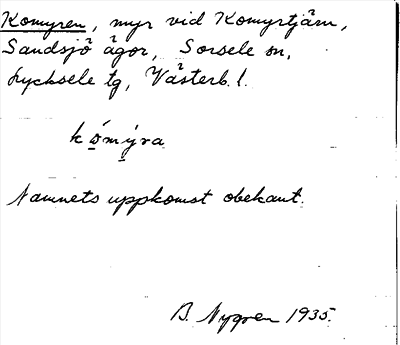 Komyren, myr vid Komyrtjärn,
Sandsjö ägor, Sorsele sn,
Lycksele tg, Västerb. l.
kọ́mỵ́ra
Namnets uppkomst obekant.
B. Nygren 1935.